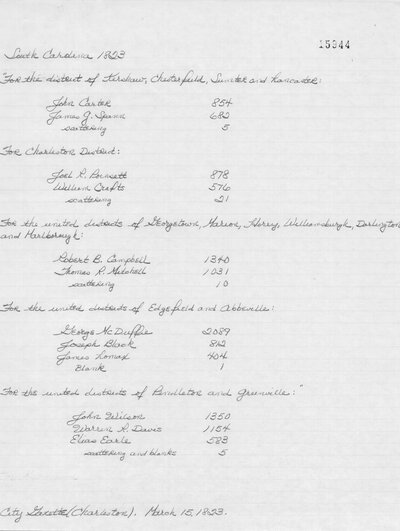 15344
South Carolina 1823
"For the district of Kershaw, Chesterfield, Sumter and Lancaster:
John Carter 854
James G. Spann 682
scattering 5
For Charleston District:
Joel R. Poinsett 878
William Crafts 576
scattering 21
For the united districts of Georgetown, Marion, Horry, Williamsburgh, Darlington
and Marlborough:
Robert B. Campbell 1340
Thomas R. Mitchell 1031
scattering 10
For the united districts of Edgefield and Abbeville:
George McDuffie 2089
Joseph Black
James Lomax 404
Blank 1
For the united districts of Pendleton and Greenville:"
John Wilson 1350
Warren R. Davis 1154
Elias Earle 583
scattering and blanks 5
City Gazette (Charleston). March 15, 1823.